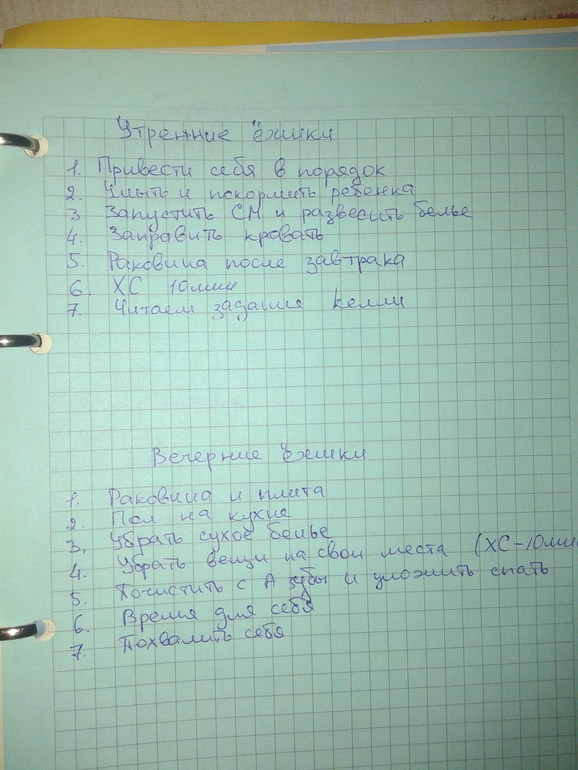 Утренние ёжики
1. Привести себя в порядок
2. Умыть и покормить ребенка
3 Запустить СМ и развесить белье
4. Заправить кровать
5. Раковина после завтрака
6. ХС 10мин
7 Читаем задания келли
Вечерние ёжики
1. Раковина и плита
2. Пол на кухне
3. Убрать сухое белье
4. Убрать вещи на свои места (ХС-10мин
5. Почистить с А зубы и уложить спать
6. Время для себя
7. Похвалить себя